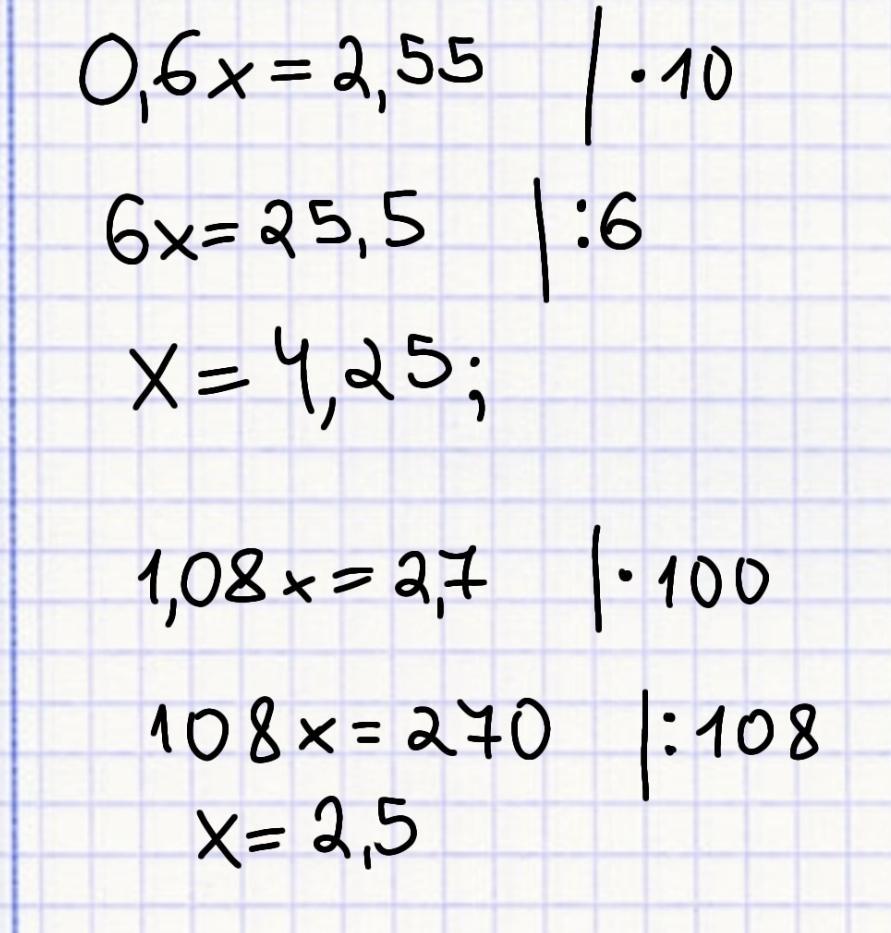 0,6x = 2,55 | · 10
6x = 25,5 | :6
x = 4,25;
1,08x = 2,7 | · 100
108x = 270 | :108
x = 2,5